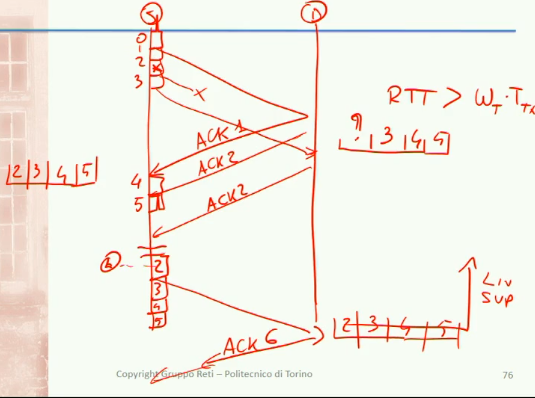 S D
0
1
2
3
X
RTT > W_T · T_TX
? 3 4 5
ACK 1
ACK 2
2 3 4 5
4
5
ACK 2
2
3
4
5
2 3 4 5
LIV
SUP
ACK 6
Copyright Gruppo Reti – Politecnico di Torino
76